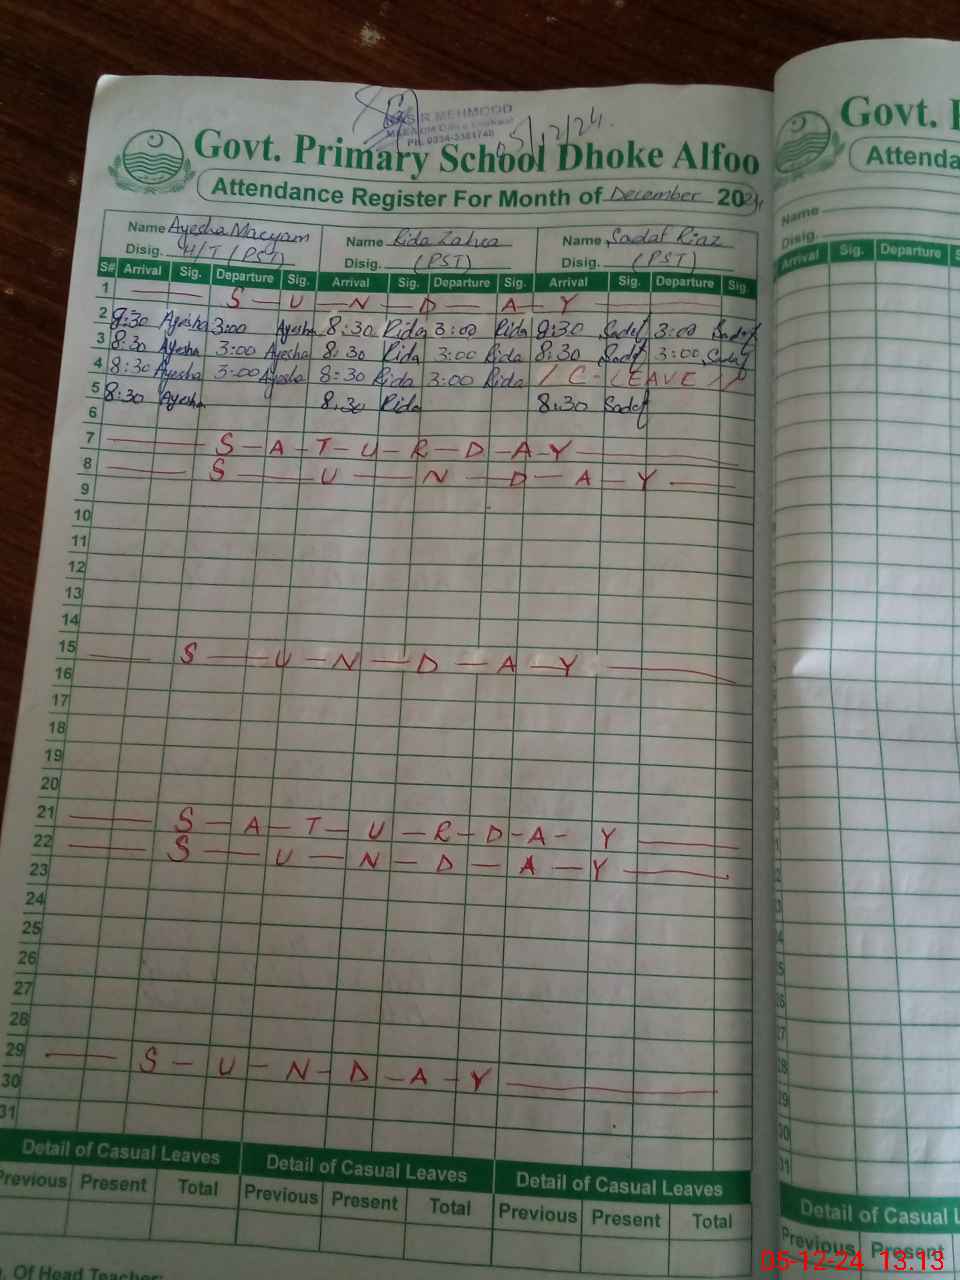 MEHMOOD
05/12/24.
Govt. Primary School Dhoke Alfoo
Attendance Register For Month of December 2024
Name Ayesha Maryam Name Rida Zahra Name Sadaf Riaz
Disig. H/T (PST) Disig. (PST) Disig. (PST)
S# Arrival Sig. Departure Sig. Arrival Sig. Departure Sig. Arrival Sig. Departure Sig.
1 S U N D A Y
2 8:30 Ayesha 3:00 Ayesha 8:30 Rida 3:00 Rida 8:30 Sadaf 3:00 Sadaf
3 8:30 Ayesha 3:00 Ayesha 8:30 Rida 3:00 Rida 8:30 Sadaf 3:00 Sadaf
4 8:30 Ayesha 3:00 Ayesha 8:30 Rida 3:00 Rida C-LEAVE
5 8:30 Ayesha 8:30 Rida 8:30 Sadaf
6
7 S-A-T-U-R-D-A-Y
8 S U N D A Y
9
10
11
12
13
14
15 S U N D A Y
16
17
18
19
20
21 S-A-T-U-R-D-A-Y
22 S U N D A Y
23
24
25
26
27
28
29 S-U-N-D-A-Y
30
31
Detail of Casual Leaves Detail of Casual Leaves Detail of Casual Leaves
Previous Present Total Previous Present Total Previous Present Total
Of Head Teacher:
Govt.
Attenda
Name
Disig.
Arrival Sig. Departure
Detail of Casual L
Previous Present
05-12-24 13.13